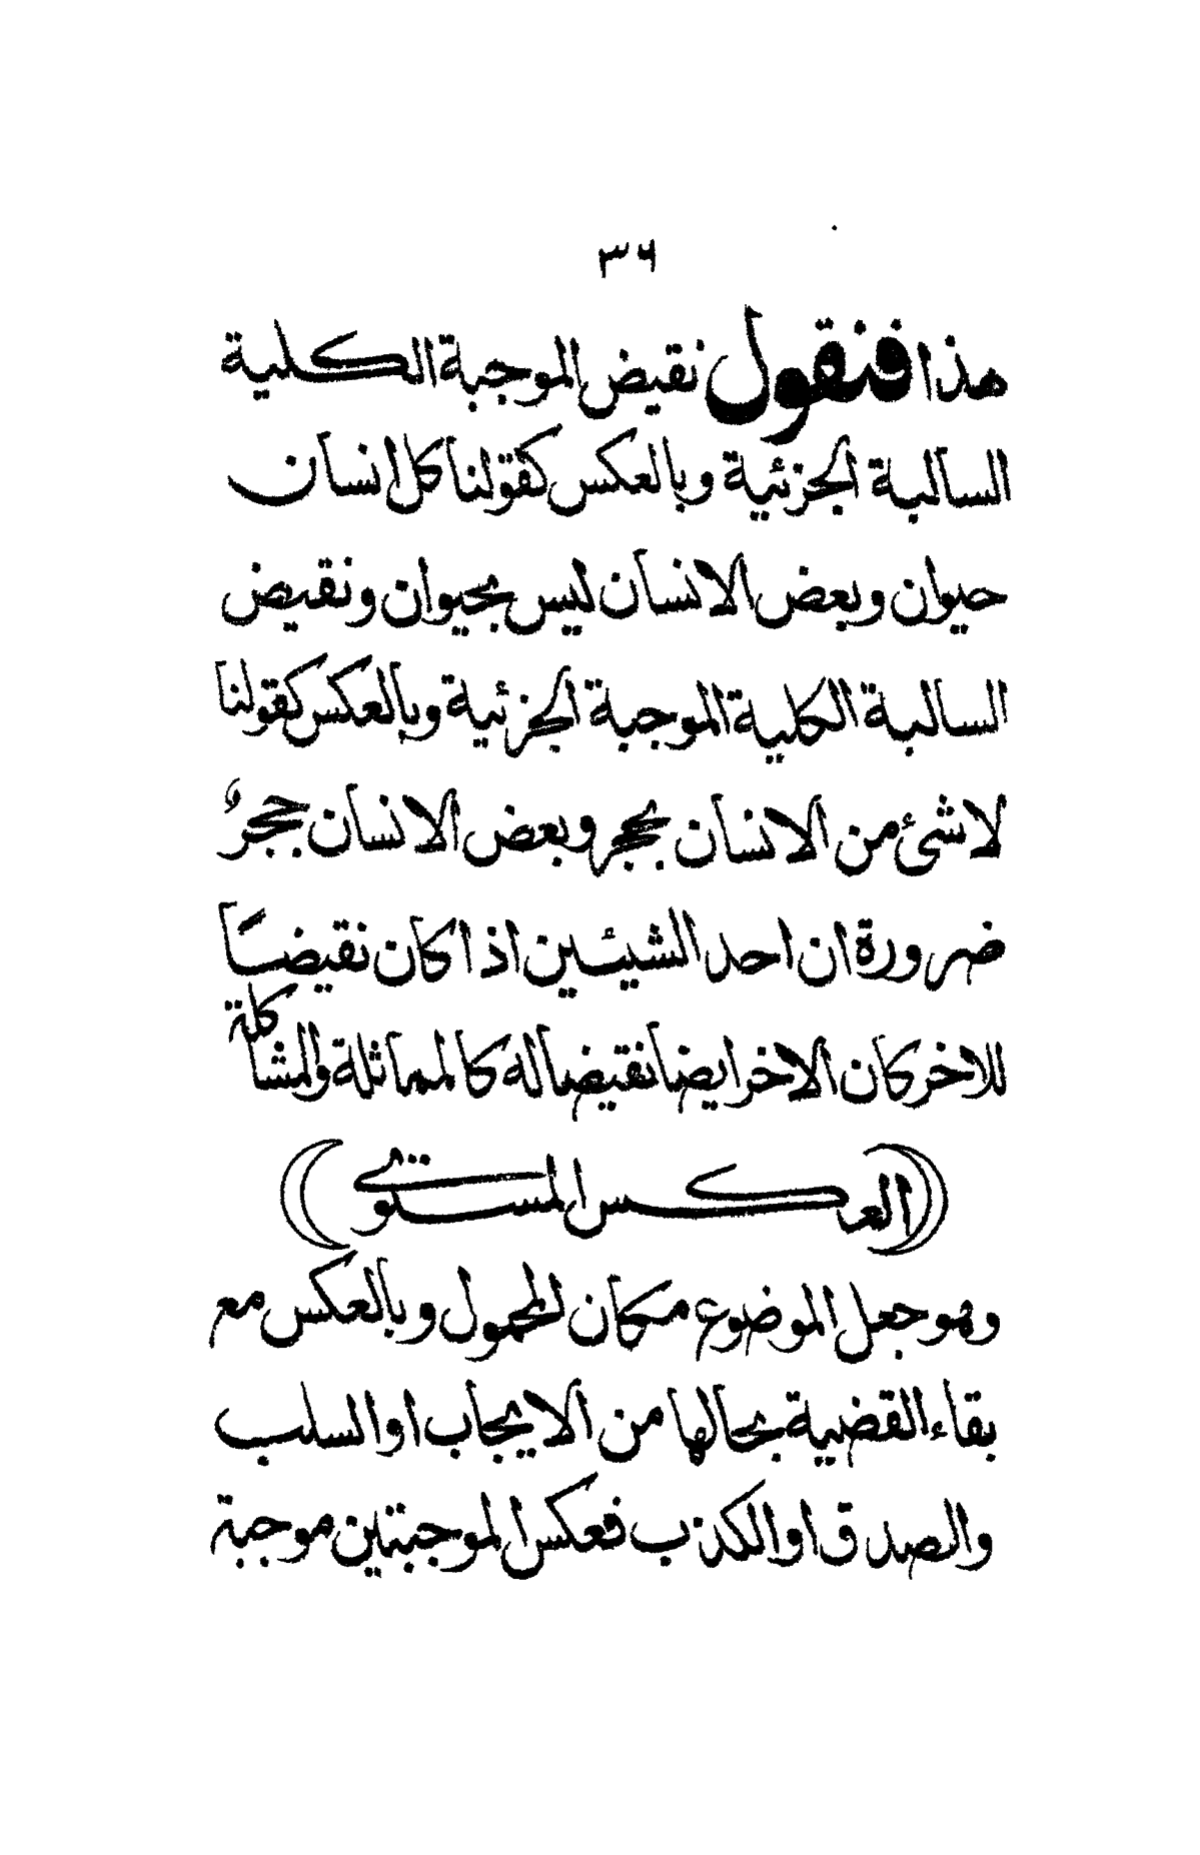 ٣٦
هذا فنقول نقيض الموجبة الكلية
السالبة الجزئية وبالعكس كقولنا كل انسان
حيوان وبعض الانسان ليس بحيوان ونقيض
السالبة الكلية الموجبة الجزئية وبالعكس كقولنا
لاشئ من الانسان بحجر وبعض الانسان حجرٌ
ضرورة ان احد الشيئين اذا كان نقيضًا
للاخر كان الاخر ايضا نقيضا له كالمماثلة والمشاكلة
(العكس المستوى)
وهو جعل الموضوع مكان المحمول وبالعكس مع
بقاء القضية بحالها من الايجاب او السلب
والصدق او الكذب فعكس الموجبتين موجبة